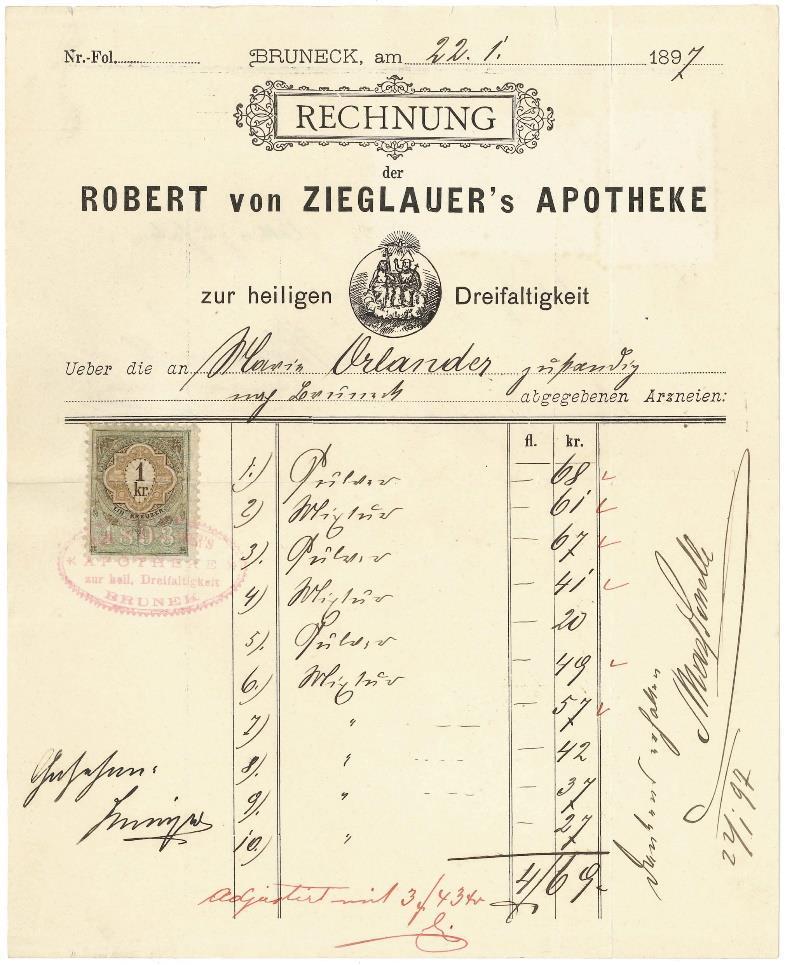 Nr.-Fol. BRUNECK, am 22. 1. 1897
RECHNUNG
der
ROBERT von ZIEGLAUER's APOTHEKE
zur heiligen Dreifaltigkeit
Ueber die an Marie Orlander zuständig
nach Bruneck abgegebenen Arzneien:
fl. kr.
1 kr.
EIN KREUZER
1893
APOTHEKE
zur heil. Dreifaltigkeit
BRUNEK
1.) Pulver — 68
2) Mixtur — 61
3.) Pulver — 67
4) Mixtur — 41
5.) Pulver — 20
6.) Mixtur — 49
7.) " — 57
8.) " — 42
9.) " — 37
10.) " — 27
4/69
Gesehen:
adjustirt mit 3 f 43 kr
dankend erhalten
22/1 97